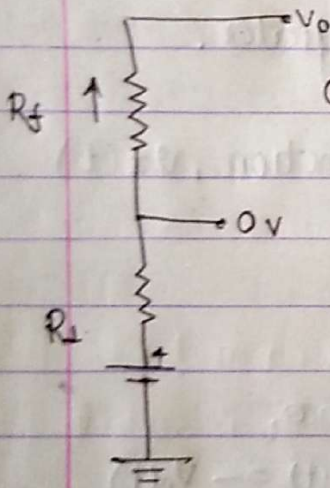 V₀
R_f ↑
0 V
R₁
+